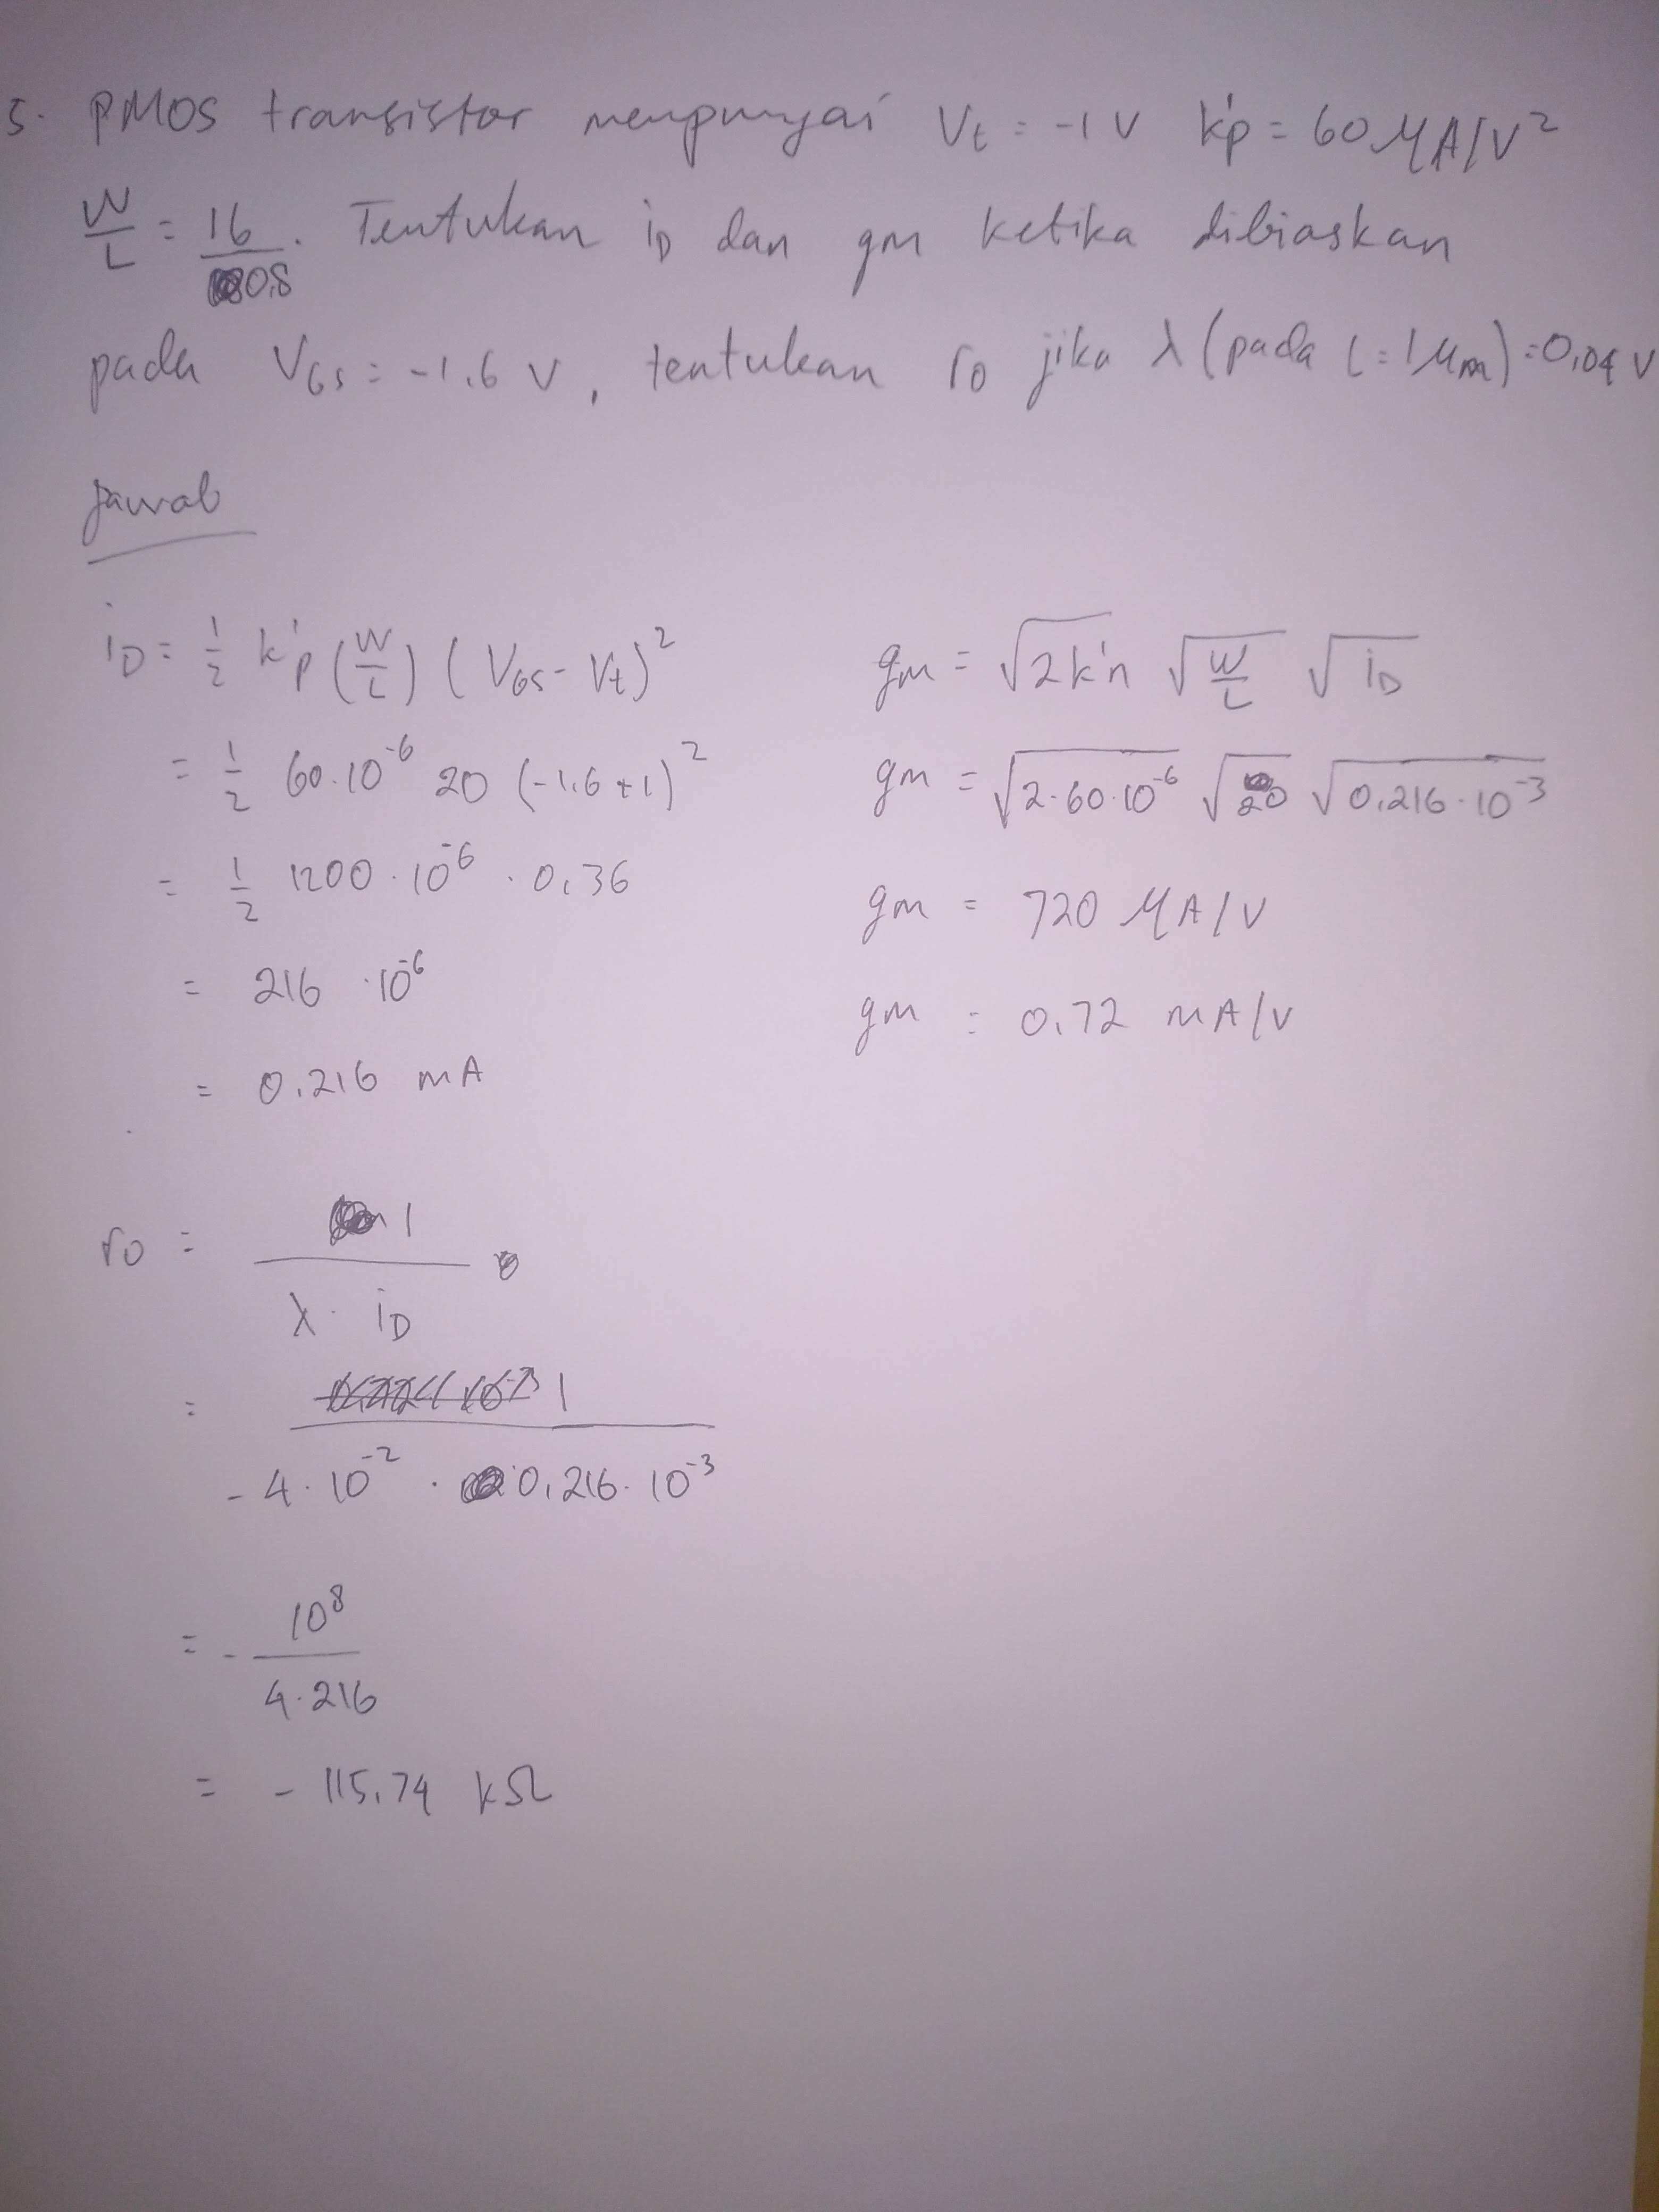 5. PMOS transistor mempunyai Vt = -1 V k'p = 60 μA/V²
W/L = 16/0,8. Tentukan iD dan gm ketika dibiaskan
pada VGS = -1.6 V, tentukan ro jika λ (pada L = 1 μm) = 0,04 V
Jawab
iD = 1/2 k'p (W/L) (VGS - Vt)²
= 1/2 60.10⁻⁶ 20 (-1.6 + 1)²
= 1/2 1200 . 10⁻⁶ . 0,36
= 216 . 10⁻⁶
= 0.216 mA
gm = √2k'n √W/L √iD
gm = √2.60.10⁻⁶ √20 √0.216.10⁻³
gm = 720 μA/V
gm = 0.72 mA/V
ro = 1 / λ . iD
= 1 / -4.10⁻² . 0,216.10⁻³
= - 10⁸ / 4.216
= - 115,74 kΩ